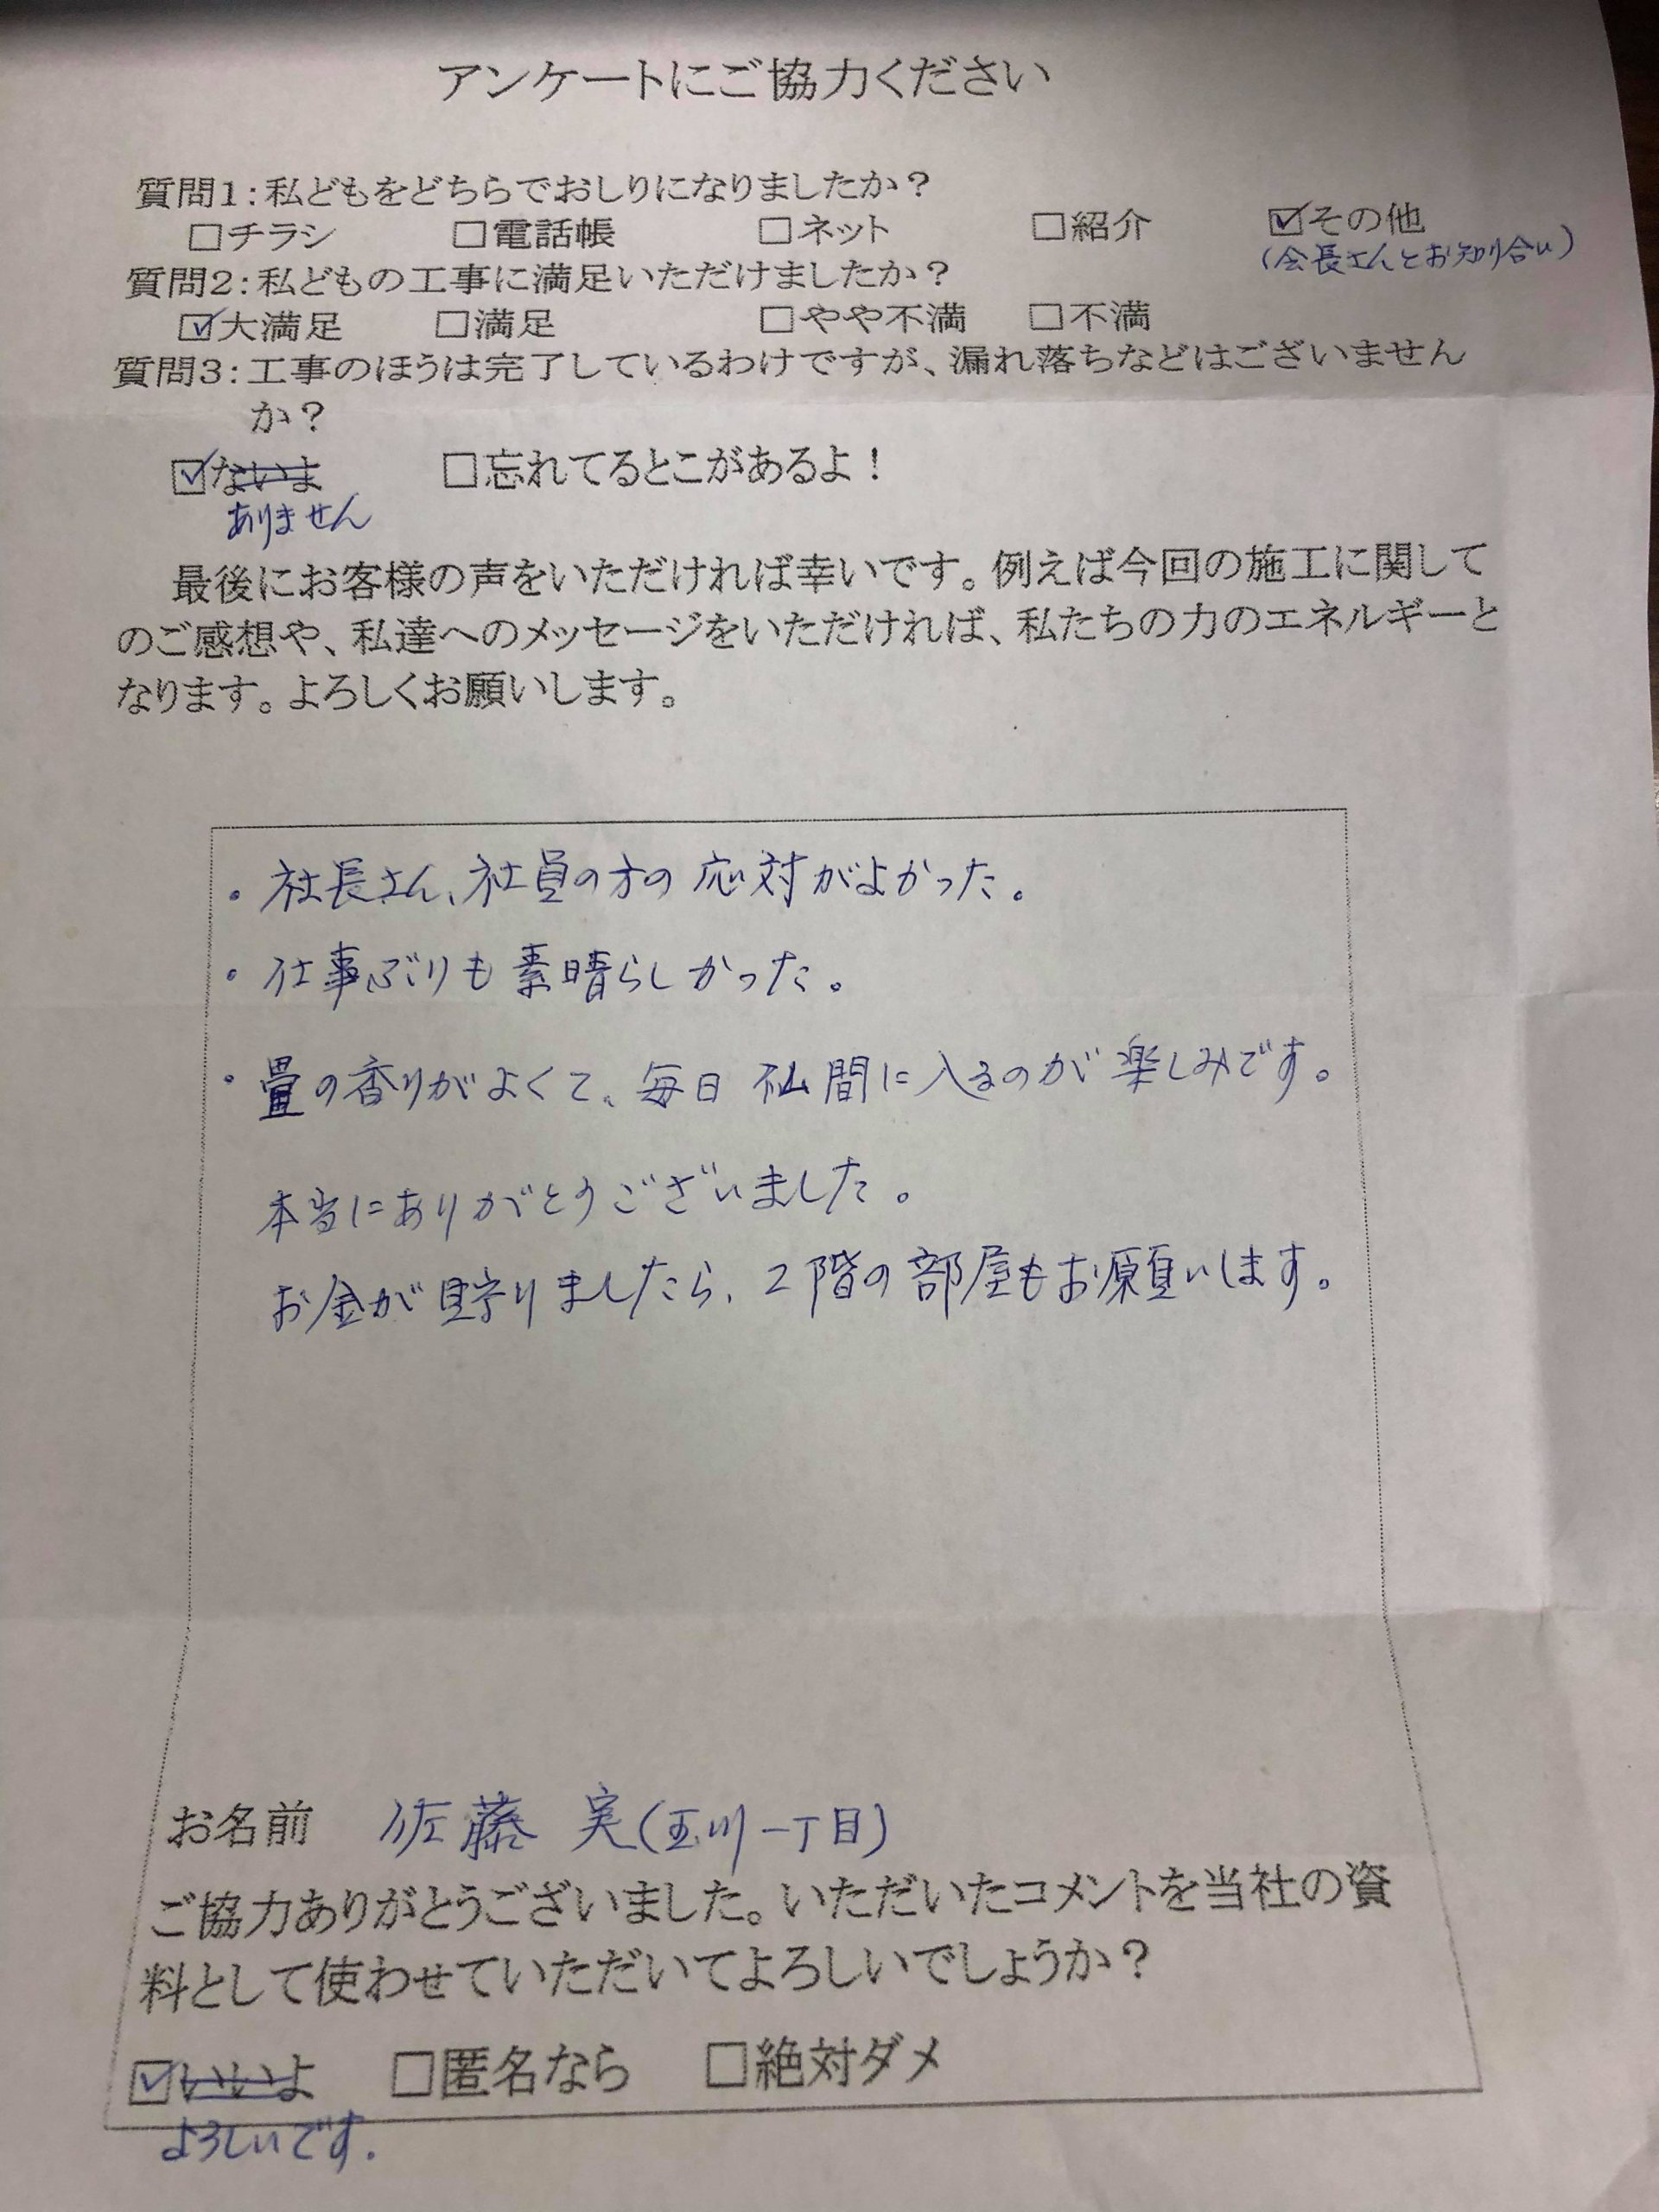 アンケートにご協力ください
質問1：私どもをどちらでおしりになりましたか？
□チラシ □電話帳 □ネット □紹介 ☑その他
(会長さんとお知り合い)
質問2：私どもの工事に満足いただけましたか？
☑大満足 □満足 □やや不満 □不満
質問3：工事のほうは完了しているわけですが、漏れ落ちなどはございません
か？
☑ないよ □忘れてるとこがあるよ！
ありません
最後にお客様の声をいただければ幸いです。例えば今回の施工に関して
のご感想や、私達へのメッセージをいただければ、私たちの力のエネルギーと
なります。よろしくお願いします。
・社長さん、社員の方の応対がよかった。
・仕事ぶりも素晴らしかった。
・畳の香りがよくて、毎日仏間に入るのが楽しみです。
本当にありがとうございました。
お金が貯りましたら、2階の部屋もお願いします。
お名前 佐藤 実(玉川一丁目)
ご協力ありがとうございました。いただいたコメントを当社の資
料として使わせていただいてよろしいでしょうか？
☑いいよ □匿名なら □絶対ダメ
よろしいです.